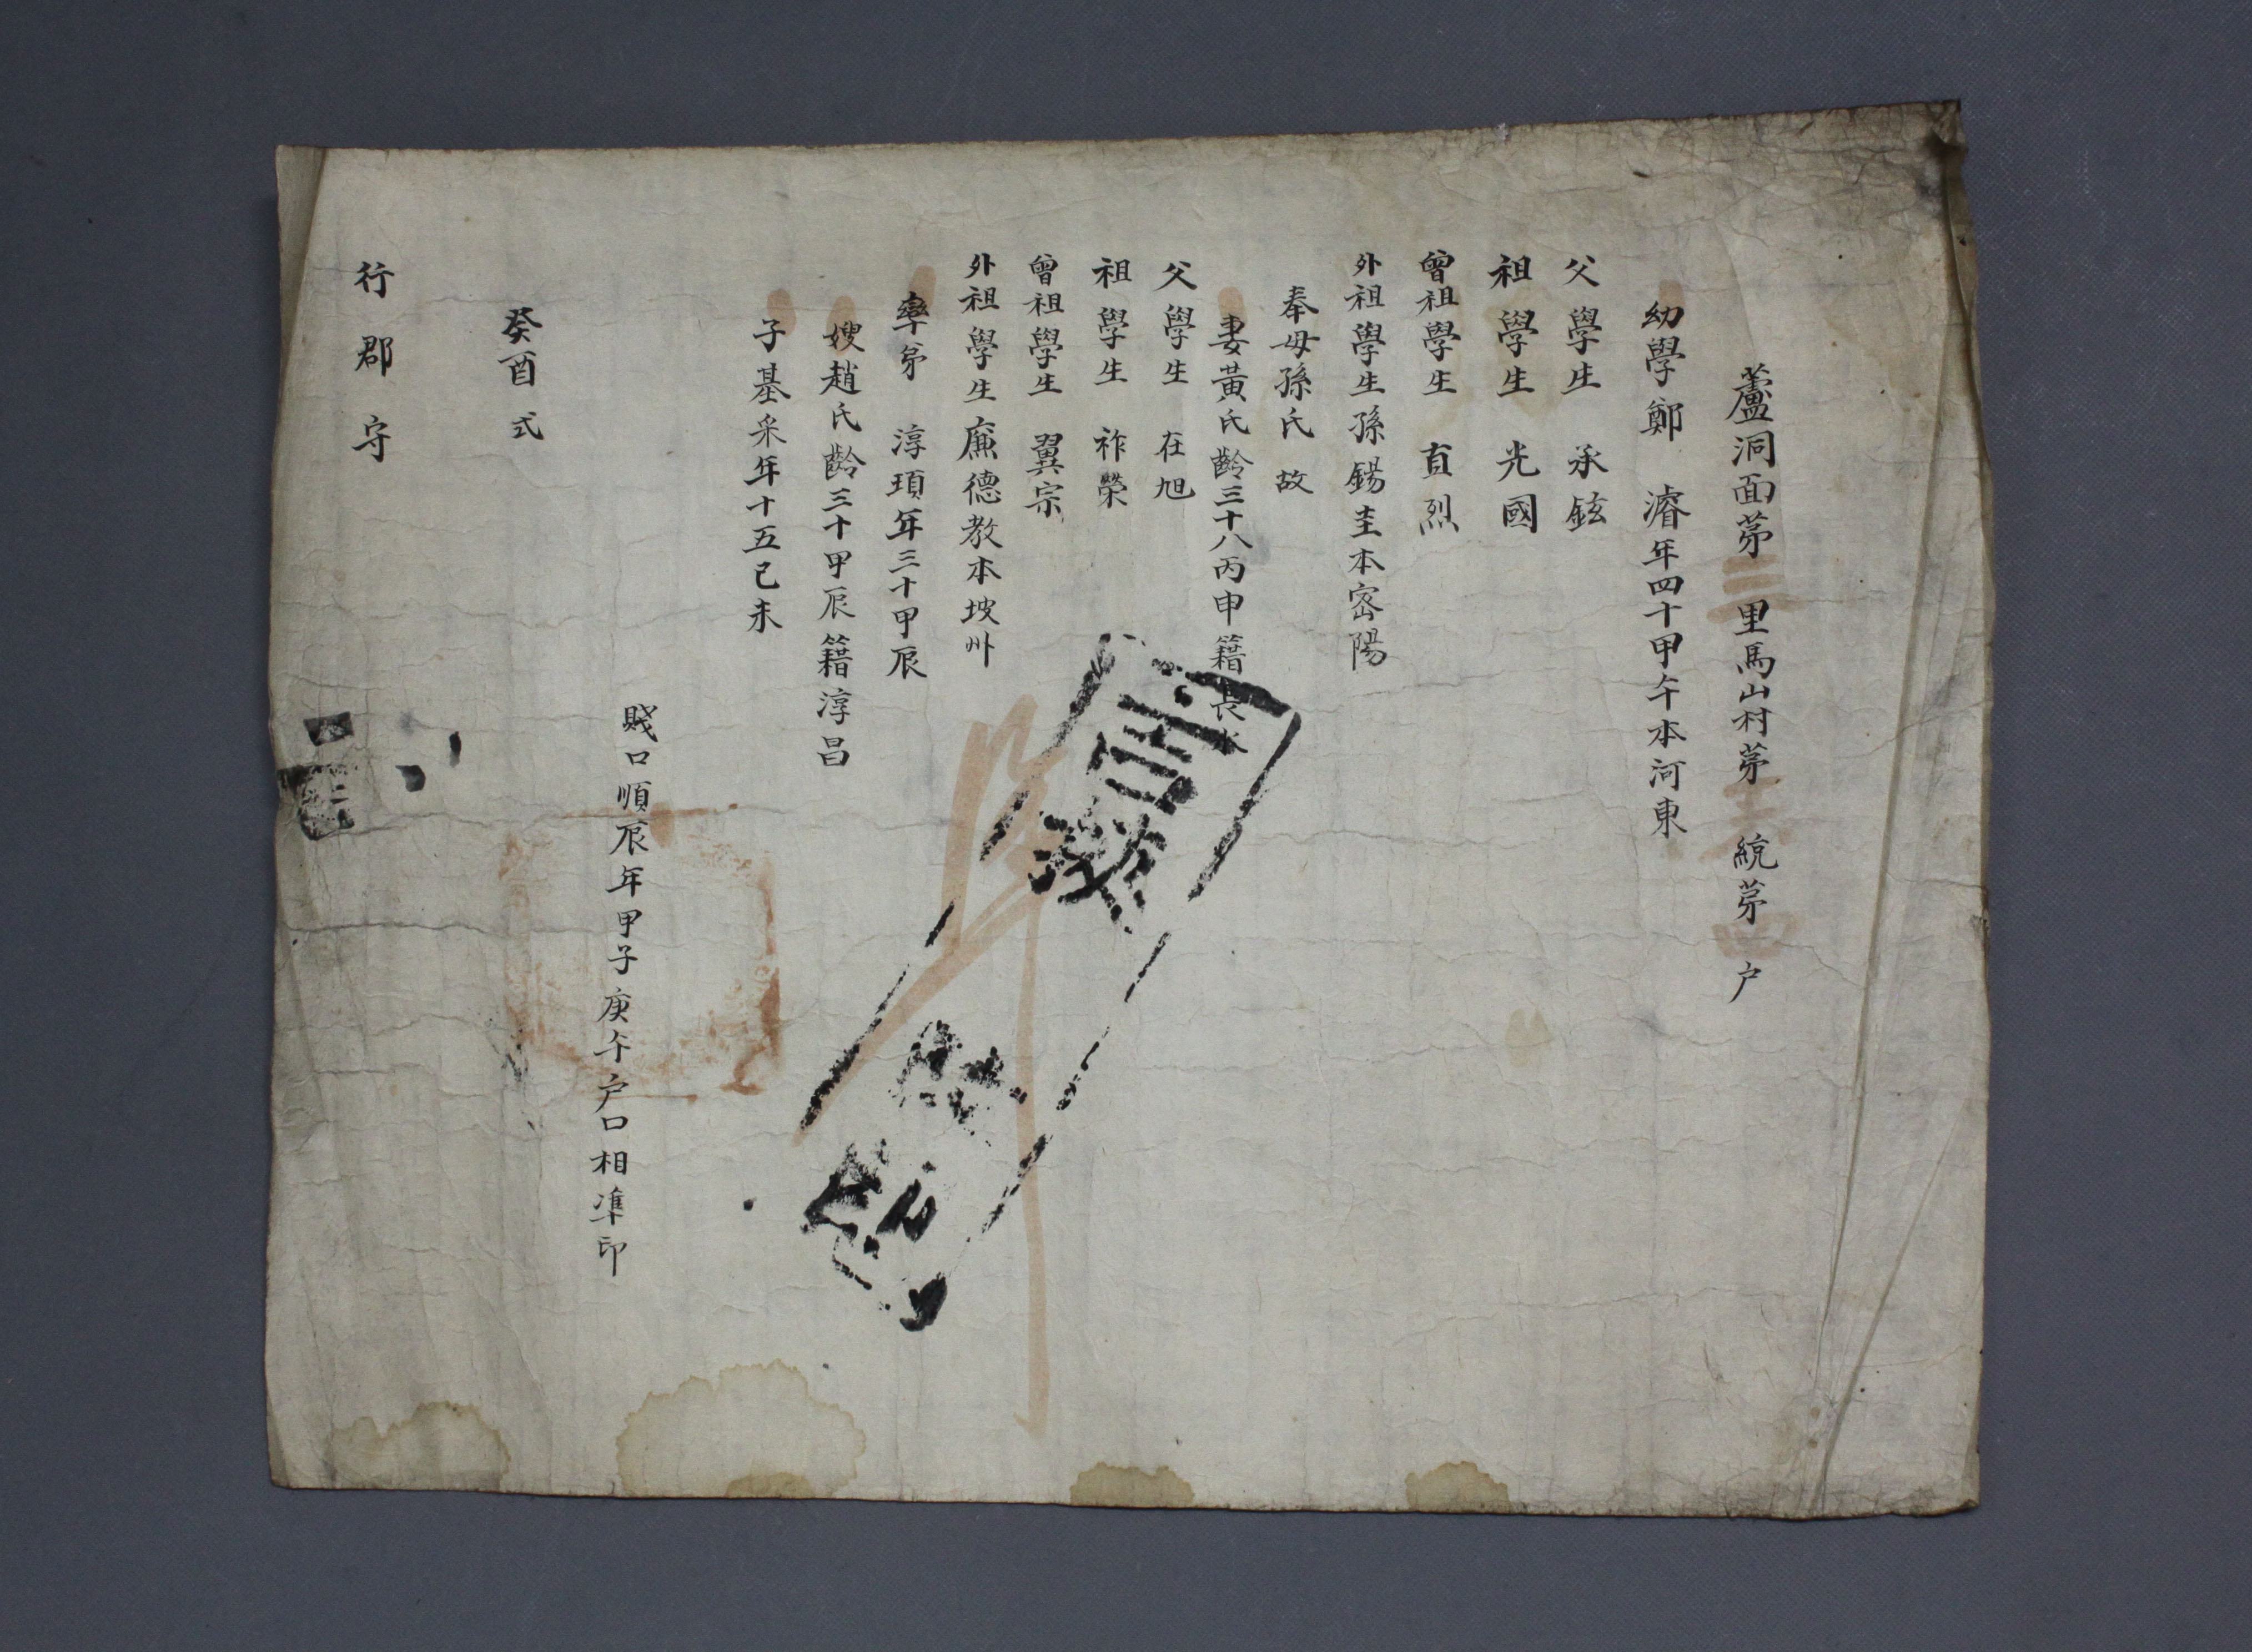 蘆洞面第二里馬山村第 統第四户
幼學鄭 濬年四十甲午本河東
父學生 承鉉
祖學生 光國
曾祖學生 直烈
外祖學生孫錫圭本密陽
奉母孫氏故
妻黃氏齡三十八丙申籍長水
父學生 在旭
祖學生 祚榮
曾祖學生 翼宗
外祖學生廉德教本坡州
率弟 淳頊年三十甲辰
嫂趙氏齡三十甲辰籍淳昌
子基采年十五己未
賤口順辰年甲子庚午户口相準印
癸酉式
行郡守